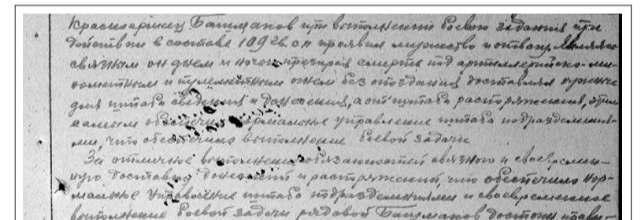 Красноармеец Башмаков при выполнении боевого задания при
действии в составе 109 гв. с.п проявил мужество и отвагу. Являясь
связным он днем и ночью презирая смерть под артиллерийско-ми-
нометным и пулеметным огнем без опоздания доставлял нужные
для штаба сведения и донесения, а от штаба распоряжения, этим
самым обеспечил нормальное управление штаба подразделения-
ми, что обеспечило выполнение боевой задачи
За отличное выполнение обязанностей связного и своевремен-
ную доставку донесений и распоряжений, что обеспечило нор-
мальное управление штаба подразделениями и своевременное
выполнение боевой задачи рядовой Башмаков достоин прави-